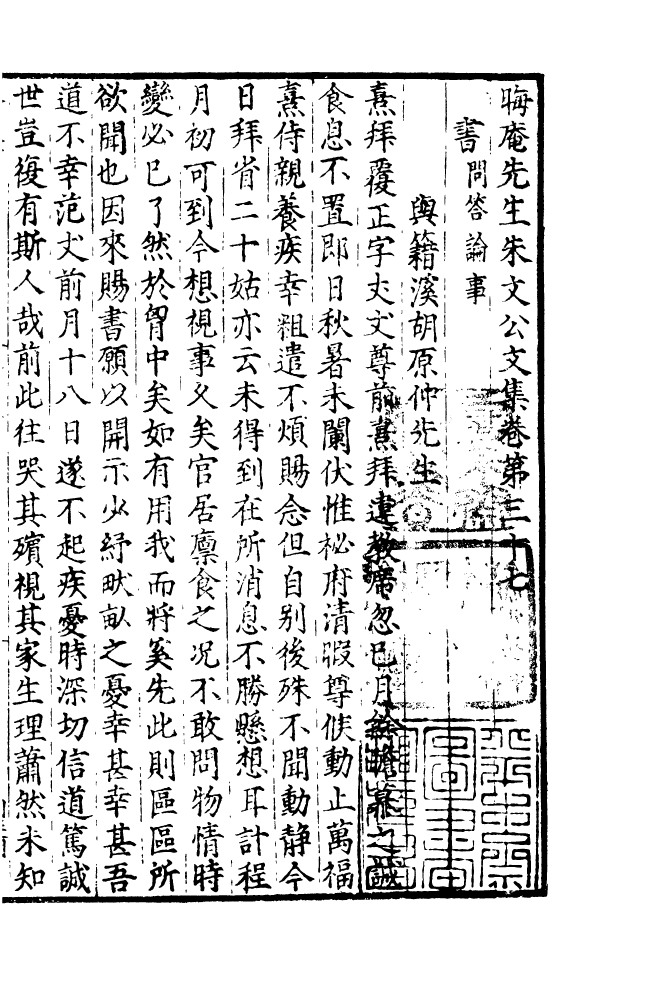 晦庵先生朱文公文集卷第三十七
書問答論事
與籍溪胡原仲先生
熹拜覆正字丈丈尊前熹拜違教席忽已月餘瞻慕之誠
食息不置即日秋暑未闌伏惟祕府清暇尊候動止萬福
熹侍親養疾幸粗遣不煩賜念但自别後殊不聞動静今
日拜省二十姑亦云未得到在所消息不勝懸想耳計程
月初可到今想視事久矣官居廪食之况不敢問物情時
變必已了然於胷中矣如有用我而將奚先此則區區所
欲聞也因來賜書願以開示少紓畎畝之憂幸甚幸甚吾
道不幸范丈前月十八日遂不起疾憂時深切信道篤誠
世豈復有斯人哉前此往哭其殯視其家生理蕭然未知